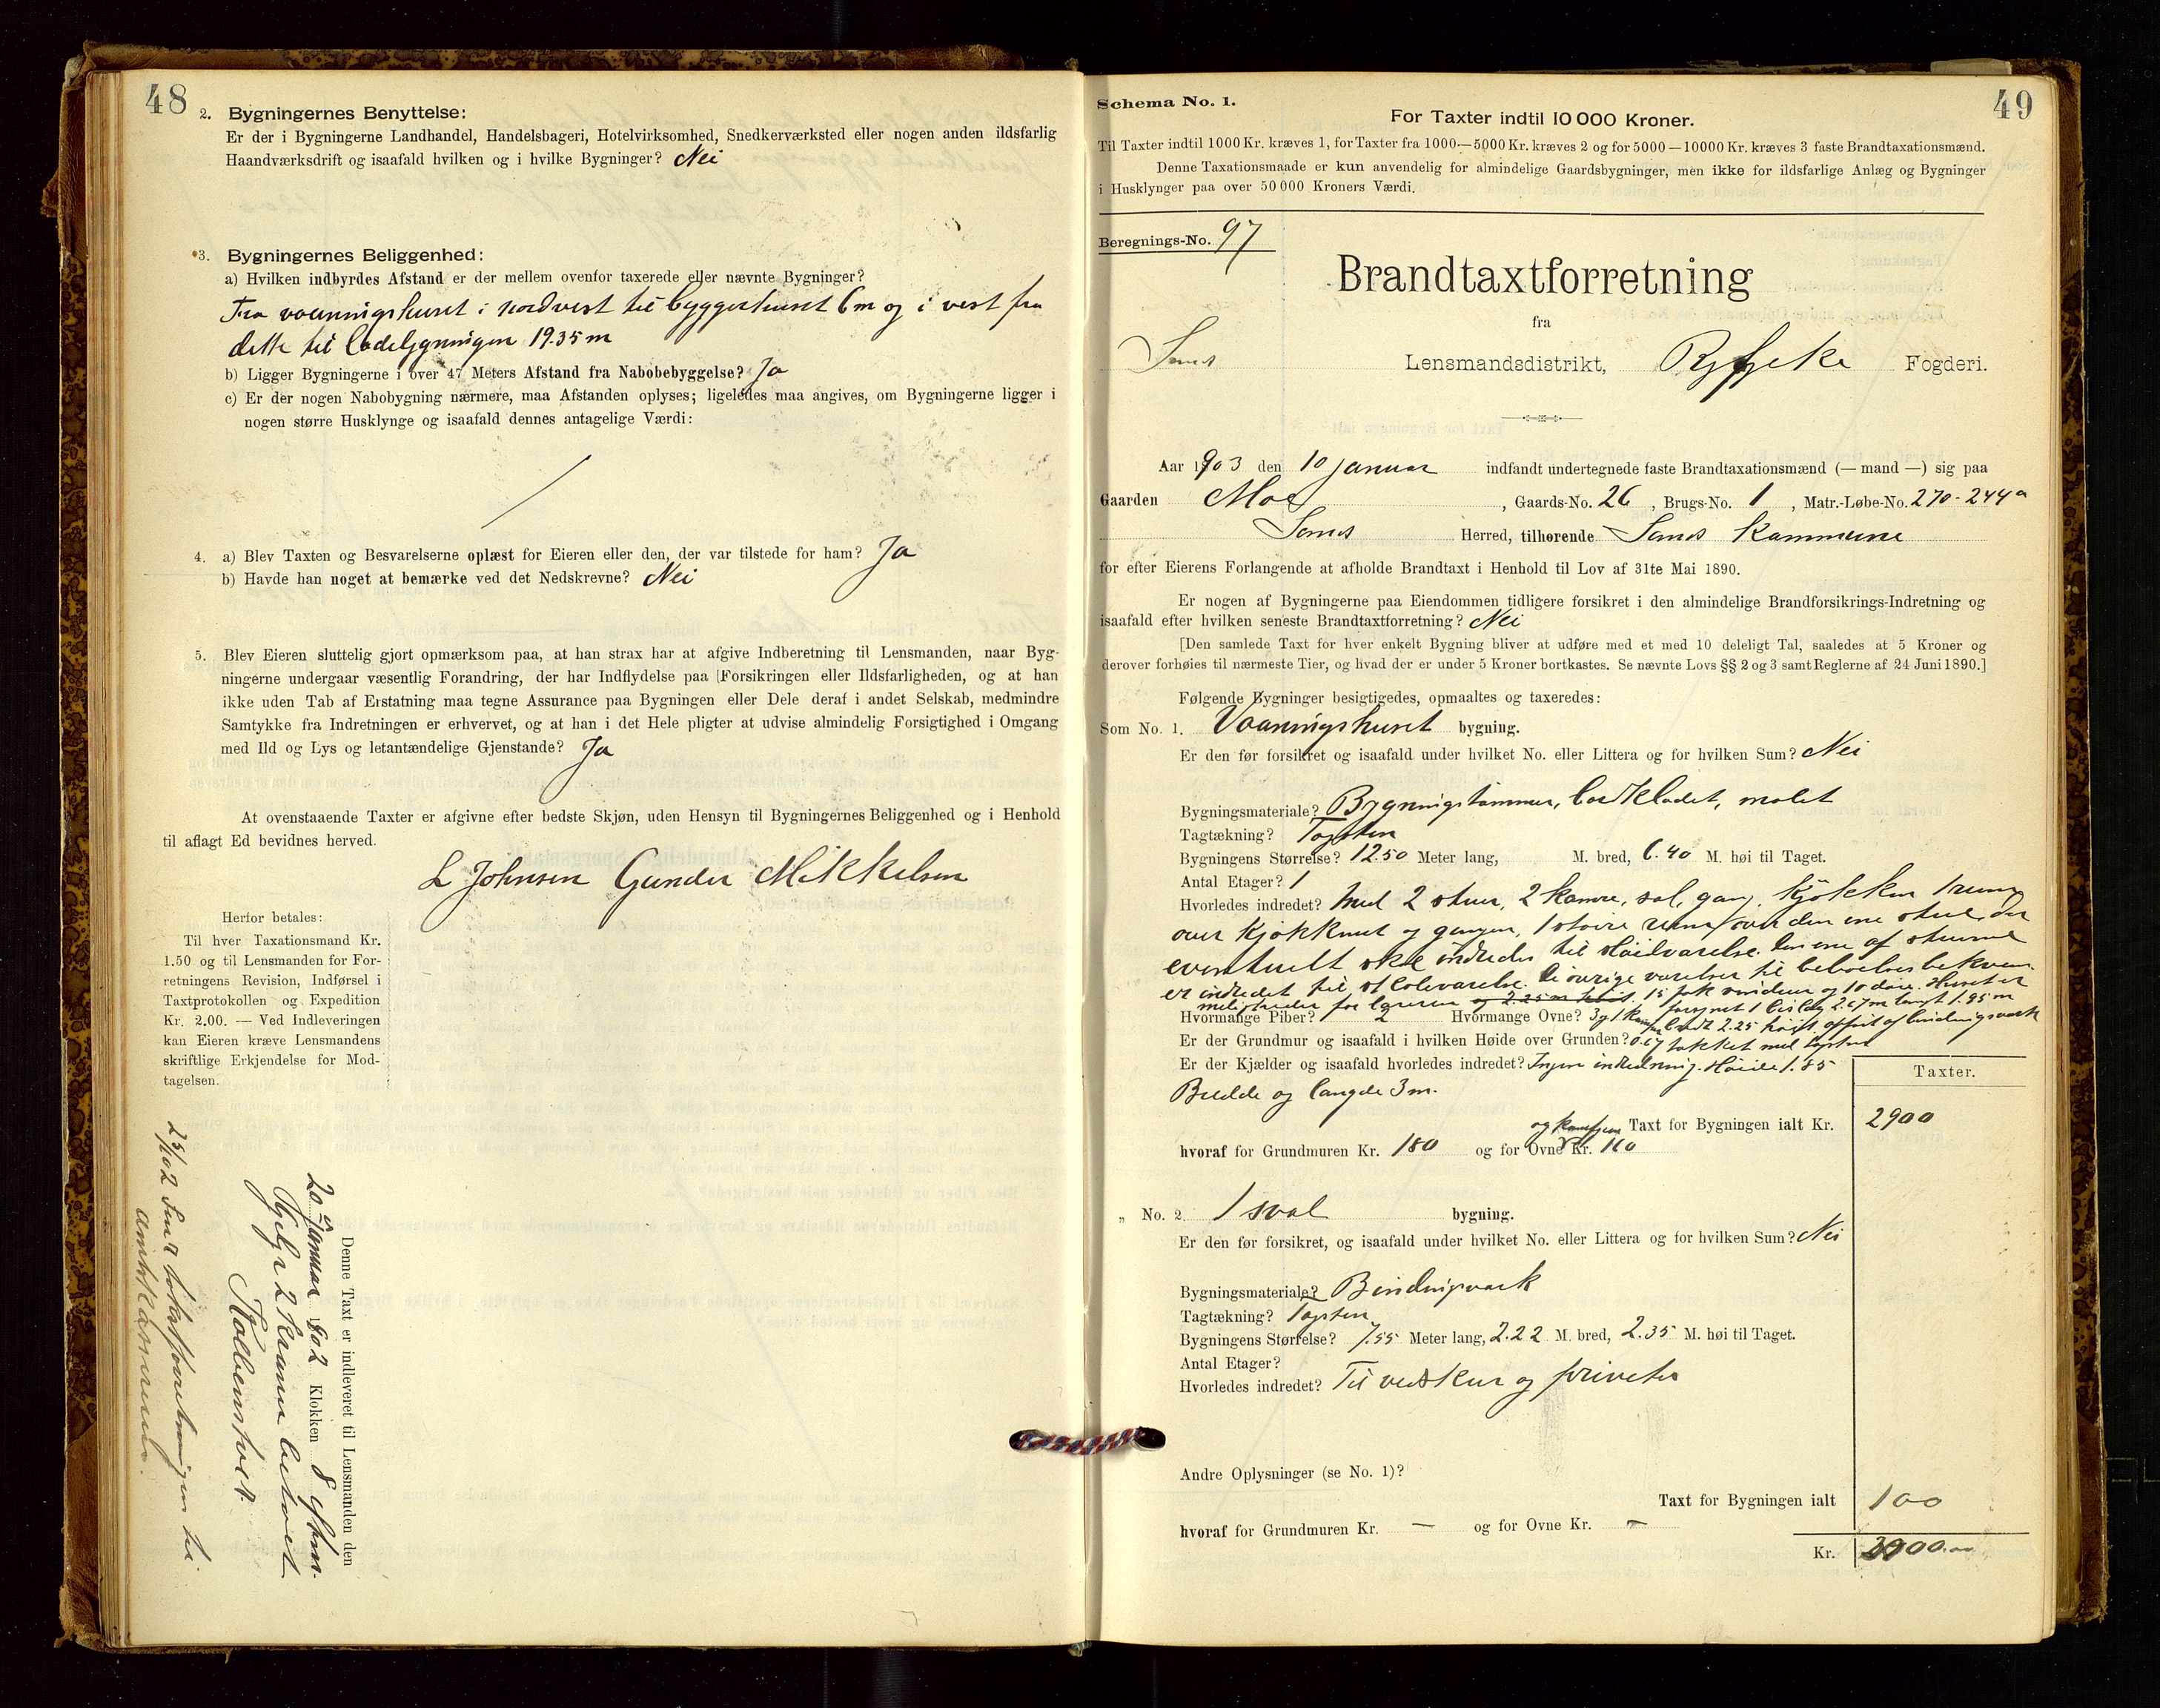 48
2. Bygningernes Benyttelse:
Er der i Bygningerne Landhandel, Handelsbageri, Hotelvirksomhed, Snedkerværksted eller nogen anden ildsfarlig
Haandværksdrift og isaafald hvilken og i hvilke Bygninger? Nei
3. Bygningernes Beliggenhed:
a) Hvilken indbyrdes Afstand er der mellem ovenfor taxerede eller nævnte Bygninger?
Fra vaaningshuset i nordvest til byggerhuset 6 m og i vest fra
dette til ladebygningen 19.35 m
b) Ligger Bygningerne i over 47 Meters Afstand fra Nabobebyggelse? Ja
c) Er der nogen Nabobygning nærmere, maa Afstanden oplyses; ligeledes maa angives, om Bygningerne ligger i
nogen større Husklynge og isaafald dennes antagelige Værdi:
4. a) Blev Taxten og Besvarelserne oplæst for Eieren eller den, der var tilstede for ham? Ja
b) Havde han noget at bemærke ved det Nedskrevne? Nei
5. Blev Eieren sluttelig gjort opmærksom paa, at han strax har at afgive Indberetning til Lensmanden, naar Byg-
ningerne undergaar væsentlig Forandring, der har Indflydelse paa (Forsikringen eller Ildsfarligheden, og at han
ikke uden Tab af Erstatning maa tegne Assurance paa Bygningen eller Dele deraf i andet Selskab, medmindre
Samtykke fra Indretningen er erhvervet, og at han i det Hele pligter at udvise almindelig Forsigtighed i Omgang
med Ild og Lys og letantændelige Gjenstande? Ja
At ovenstaaende Taxter er afgivne efter bedste Skjøn, uden Hensyn til Bygningernes Beliggenhed og i Henhold
til aflagt Ed bevidnes herved.
L Johnsen Gunder Mikkelsen
Herfor betales:
Til hver Taxationsmand Kr.
1.50 og til Lensmanden for For-
retningens Revision, Indførsel i
Taxtprotokollen og Expedition
Kr. 2.00. — Ved Indleveringen
kan Eieren kræve Lensmandens
skriftlige Erkjendelse for Mod-
tagelsen.
Denne Taxt er indleveret til Lensmanden den
20 Januar 1902 Klokken 8 eftm.
Gebyr 2 Kroner betalt
Kolbenstvedt
25/1 02 Sendt takstforretningen til
Amtskassereren.
49
Schema No. 1.
For Taxter indtil 10 000 Kroner.
Til Taxter indtil 1000 Kr. kræves 1, for Taxter fra 1000—5000 Kr. kræves 2 og for 5000—10000 Kr. kræves 3 faste Brandtaxationsmænd.
Denne Taxationsmaade er kun anvendelig for almindelige Gaardsbygninger, men ikke for ildsfarlige Anlæg og Bygninger
i Husklynger paa over 50 000 Kroners Værdi.
Beregnings-No. 97
Brandtaxtforretning
fra
Sands Lensmandsdistrikt, Ryfylke Fogderi.
Aar 1903 den 10 januar indfandt undertegnede faste Brandtaxationsmænd (— mand —) sig paa
Gaarden Moe, Gaards-No. 26, Brugs-No. 1, Matr.-Løbe-No. 270-244a
Sands Herred, tilhørende Sands Kommune
for efter Eierens Forlangende at afholde Brandtaxt i Henhold til Lov af 31te Mai 1890.
Er nogen af Bygningerne paa Eiendommen tidligere forsikret i den almindelige Brandforsikrings-Indretning og
isaafald efter hvilken seneste Brandtaxtforretning? Nei
[Den samlede Taxt for hver enkelt Bygning bliver at udføre med et med 10 deleligt Tal, saaledes at 5 Kroner og
derover forhøies til nærmeste Tier, og hvad der er under 5 Kroner bortkastes. Se nævnte Lovs §§ 2 og 3 samt Reglerne af 24 Juni 1890.]
Følgende Bygninger besigtigedes, opmaaltes og taxeredes:
Som No. 1. Vaaningshuset bygning.
Er den før forsikret og isaafald under hvilket No. eller Littera og for hvilken Sum? Nei
Bygningsmateriale? Bygningstømmer, bordkledet, malet
Tagtækning? Tagsten
Bygningens Størrelse? 12.50 Meter lang, M. bred, 6.40 M. høi til Taget.
Antal Etager? 1
Hvorledes indredet? med 2 stuer, 2 kamre, sal, gang, kjøkken 1 rum
over kjøkkenet og gangen, 1 større rum over den ene stue, der
eventuelt skal indredes til . Den ene af stuerne
er indredet til skoleværelse. De øvrige værelser til beboelses bekvem-
meligheder for læreren og 2.25 m høit. 15 fak vinduer og 10 døre. Huset er
Hvormange Piber? 2 Hvormange Ovne? 3 og 1 komfyr forsynet 1 bislag 2.67 m langt 1.95 m
bredt 2.25 høit opført af bindingsverk
Er der Grundmur og isaafald i hvilken Høide over Grunden? 0.67 tækket med tagsten
Er der Kjælder og isaafald hvorledes indredet? Ingen indredning. Høide 1.85
Bredde og længde 3 m.
Taxter.
og komfyren Taxt for Bygningen ialt Kr. 2900
hvoraf for Grundmuren Kr. 180 og for Ovne Kr. 160
„ No. 2. 1 sval bygning.
Er den før forsikret, og isaafald under hvilket No. eller Littera og for hvilken Sum? Nei
Bygningsmateriale? Bindingsverk
Tagtækning? Tagsten
Bygningens Størrelse? 7.55 Meter lang, 2.22 M. bred, 2.35 M. høi til Taget.
Antal Etager?
Hvorledes indredet? Til vedskur og priveter
Andre Oplysninger (se No. 1)?
Taxt for Bygningen ialt 100
hvoraf for Grundmuren Kr. — og for Ovne Kr. —
Kr. 3000.00